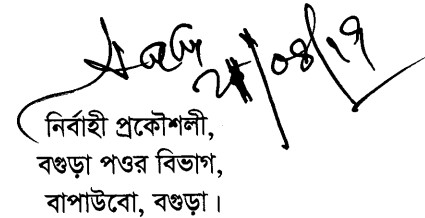 নির্বাহী প্রকৌশলী,
বগুড়া পওর বিভাগ,
বাপাউবো, বগুড়া।